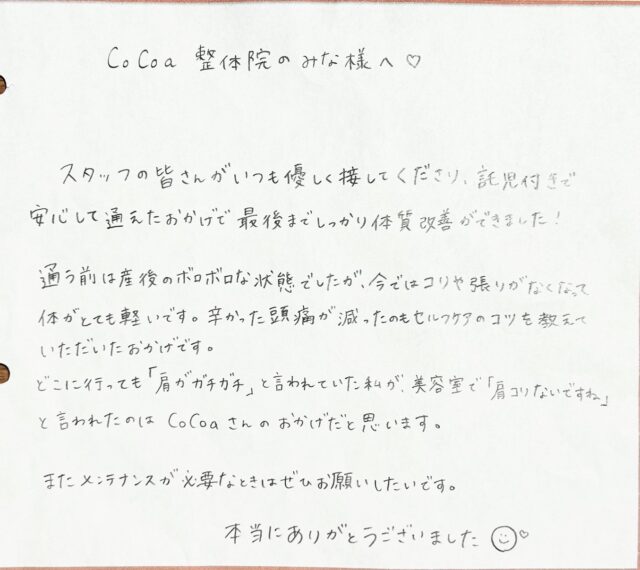 CoCoa 整体院のみな様へ♡
スタッフの皆さんがいつも優しく接してくださり、託児付きで
安心して通えたおかげで最後までしっかり体質改善ができました！
通う前は産後のボロボロな状態でしたが、今ではコリや張りがなくなって
体がとても軽いです。辛かった頭痛が減ったのもセルフケアのコツを教えて
いただいたおかげです。
どこに行っても「肩がガチガチ」と言われていた私が、美容室で「肩コリないですね」
と言われたのは CoCoaさんのおかげだと思います。
またメンテナンスが必要なときはぜひお願いしたいです。
本当にありがとうございました☺♡